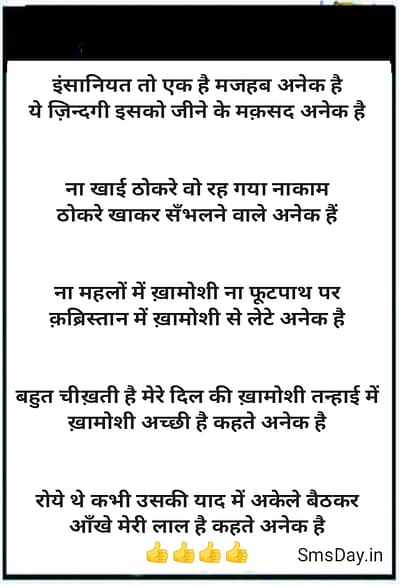 इंसानियत तो एक है मजहब अनेक है
ये ज़िन्दगी इसको जीने के मक़सद अनेक है
ना खाई ठोकरे वो रह गया नाकाम
ठोकरे खाकर सँभलने वाले अनेक हैं
ना महलों में ख़ामोशी ना फूटपाथ पर
क़ब्रिस्तान में ख़ामोशी से लेटे अनेक है
बहुत चीख़ती है मेरे दिल की ख़ामोशी तन्हाई में
ख़ामोशी अच्छी है कहते अनेक है
रोये थे कभी उसकी याद में अकेले बैठकर
आँखे मेरी लाल है कहते अनेक है
👍👍👍👍 SmsDay.in